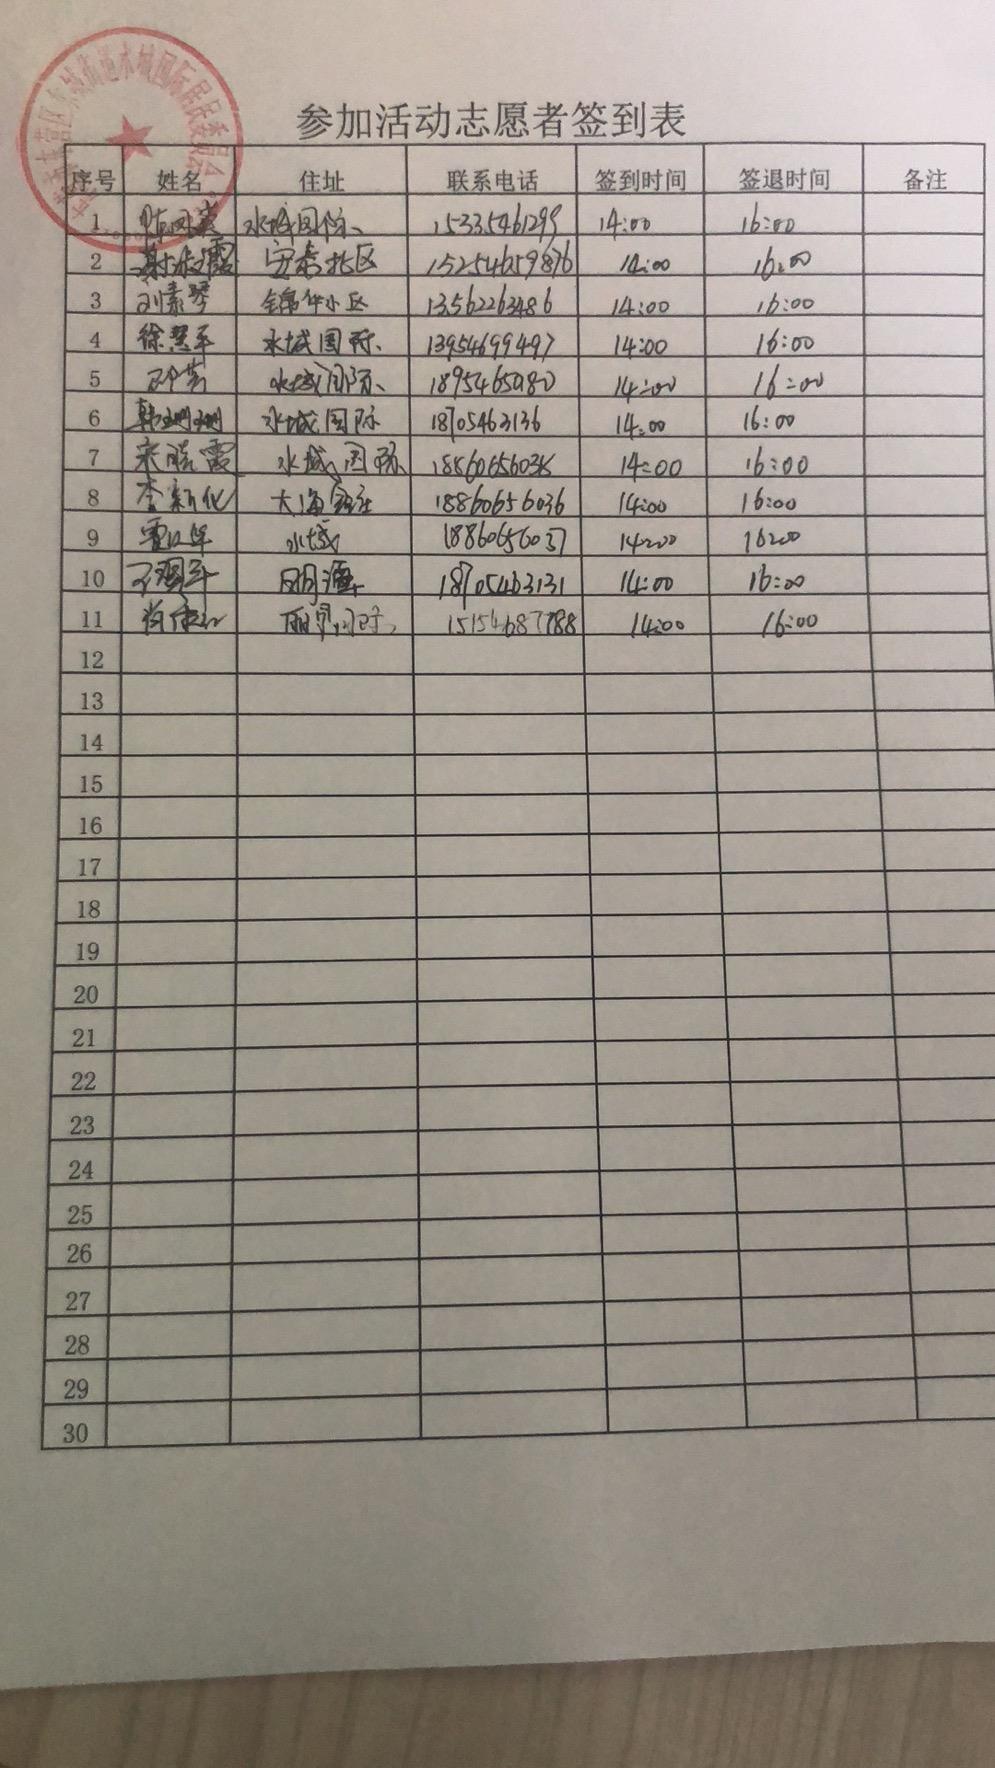 参加活动志愿者签到表
序号 姓名 住址 联系电话 签到时间 签退时间 备注
1 水城国际、 15335461299 14:00 16:00
2 安泰北区 15254659876 14:00 16:00
3 刘素琴 锦华小区 13562263486 14:00 16:00
4 徐慧军 水城国际、 13954699497 14:00 16:00
5 水城国际、 14:00 16:00
6 韩珊珊 水城国际 18705463136 14:00 16:00
7 宋晓霞 水城国际 14:00 16:00
8 李新化 大海 18860656036 14:00 16:00
9 水城 18860656037 14:00 16:00
10 18705463131 14:00 16:00
11 14:00 16:00
12
13
14
15
16
17
18
19
20
21
22
23
24
25
26
27
28
29
30